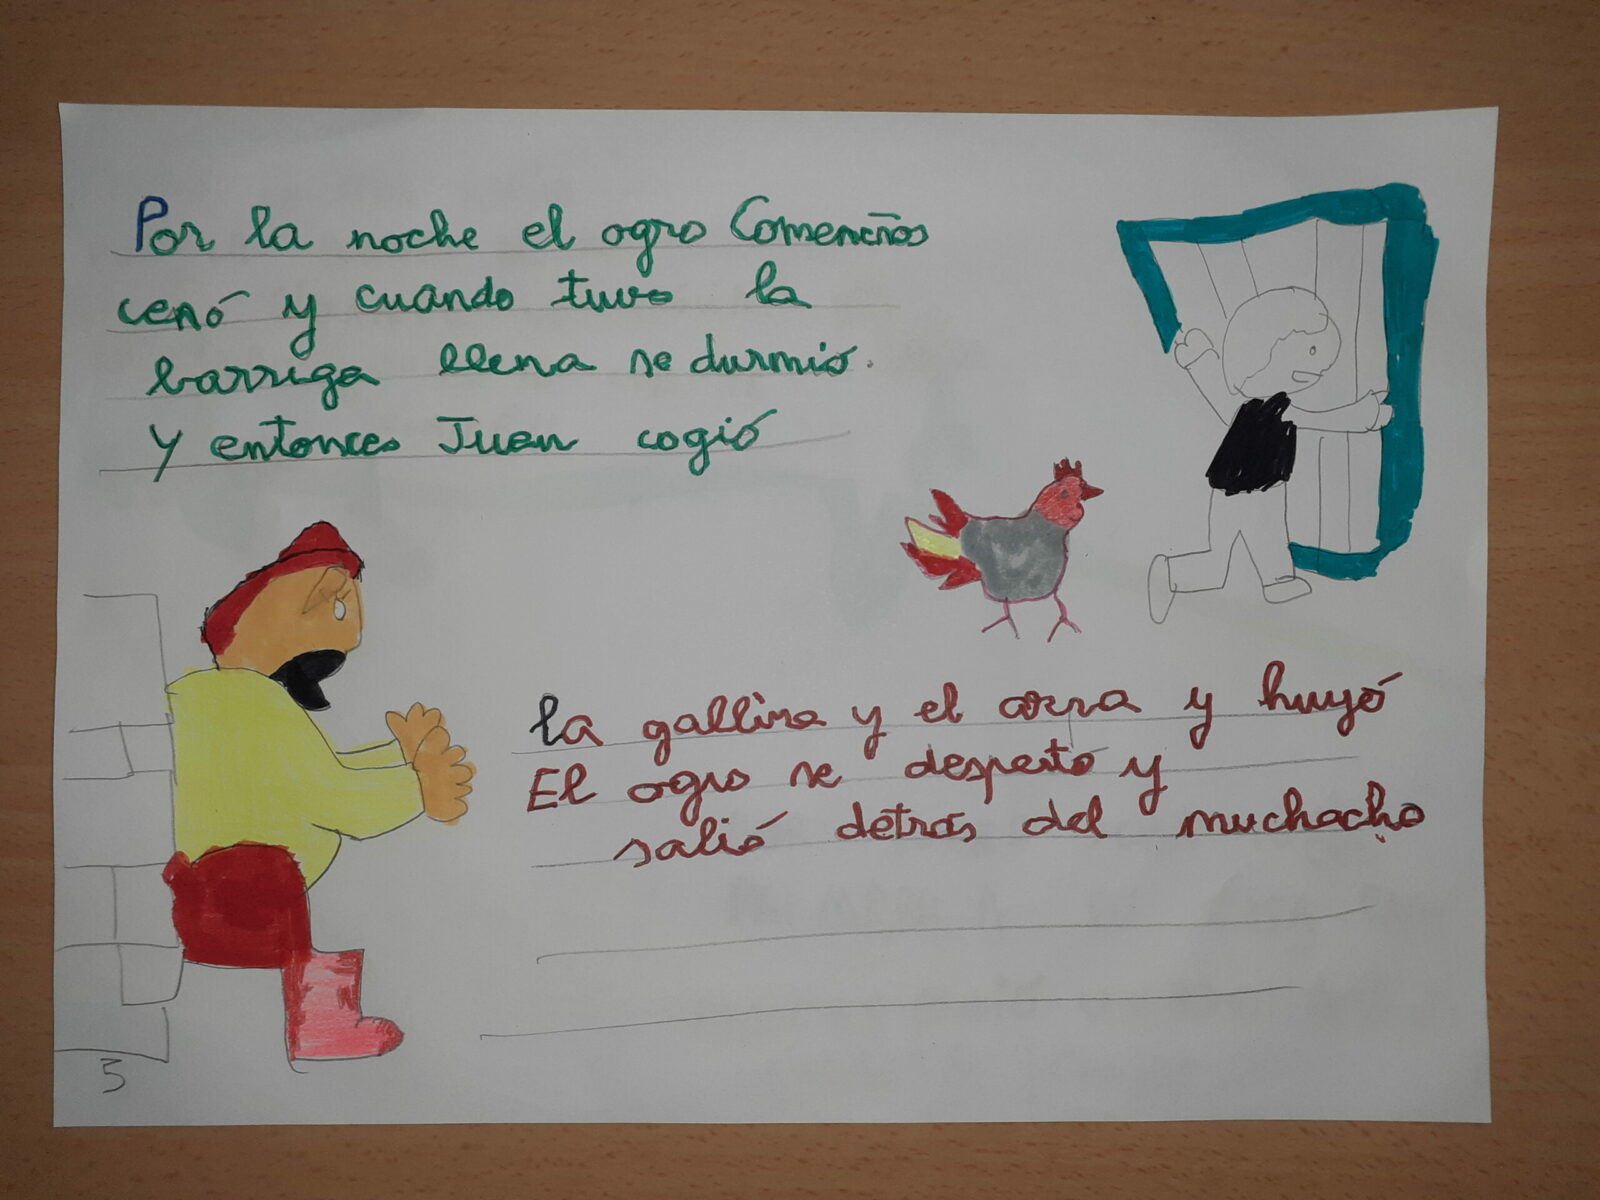 Por la noche el ogro Comeniños
cenó y cuando tuvo la
barriga llena se durmió.
Y entonces Juan cogió
la gallina y el arpa y huyó
El ogro se despertó y
salió detrás del muchacho
5